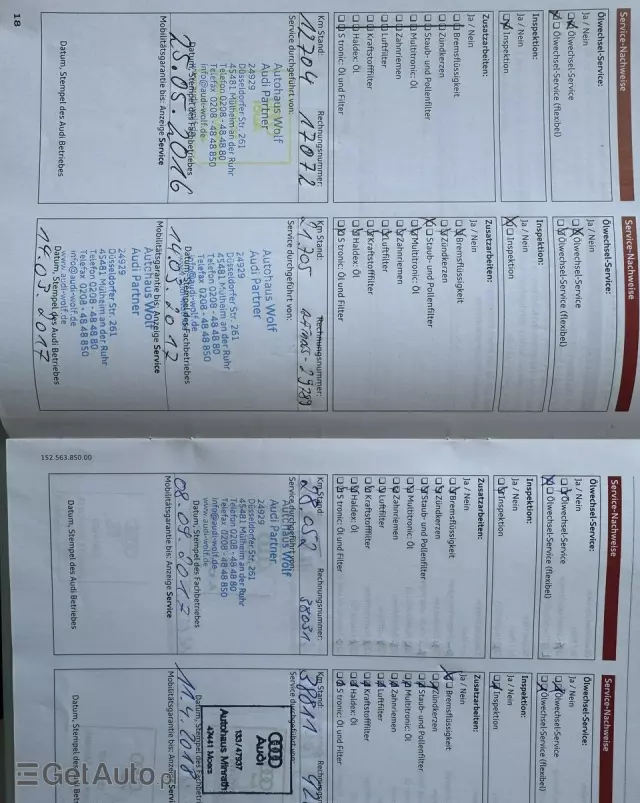 Service-Nachweise
Ölwechsel-Service:
Ja / Nein
Ölwechsel-Service
Ölwechsel-Service (flexibel)
Inspektion:
Ja / Nein
Inspektion
Zusatzarbeiten:
Ja / Nein
Bremsflüssigkeit
Zündkerzen
Staub- und Pollenfilter
Multitronic: Öl
Zahnriemen
Luftfilter
Kraftstofffilter
Haldex: Öl
S tronic: Öl und Filter
Km Stand: Rechnungsnummer:
12704 17072
Service durchgeführt von:
Autohaus Wolf
Audi Partner
24929
Düsseldorfer Str. 261
45481 Mülheim an der Ruhr
Telefon 0208 - 48 48 80
Telefax 0208 - 48 48 850
info@audi-wolf.de
Datum, Stempel des Fachbetriebes
25.05.2016
Mobilitätsgarantie bis: Anzeige Service
Datum, Stempel des Audi Betriebes
18
Service-Nachweise
Ölwechsel-Service:
Ja / Nein
Ölwechsel-Service
Ölwechsel-Service (flexibel)
Inspektion:
Ja / Nein
Inspektion
Zusatzarbeiten:
Ja / Nein
Bremsflüssigkeit
Zündkerzen
Staub- und Pollenfilter
Multitronic: Öl
Zahnriemen
Luftfilter
Kraftstofffilter
Haldex: Öl
S tronic: Öl und Filter
Km Stand: Rechnungsnummer:
21705
Service durchgeführt von:
Autohaus Wolf
Audi Partner
24929
Düsseldorfer Str. 261
45481 Mülheim an der Ruhr
Telefon 0208 - 48 48 80
Telefax 0208 - 48 48 850
info@audi-wolf.de
Datum, Stempel des Fachbetriebes
14.03.2017
Mobilitätsgarantie bis: Anzeige Service
Autohaus Wolf
Audi Partner
24929
Düsseldorfer Str. 261
45481 Mülheim an der Ruhr
Telefon 0208 - 48 48 80
Telefax 0208 - 48 48 850
info@audi-wolf.de
www.audi-wolf.de
Datum, Stempel des Audi Betriebes
14.03.2017
152.563.850.00
Service-Nachweise
Ölwechsel-Service:
Ja / Nein
Ölwechsel-Service
Ölwechsel-Service (flexibel)
Inspektion:
Ja / Nein
Inspektion
Zusatzarbeiten:
Ja / Nein
Bremsflüssigkeit
Zündkerzen
Staub- und Pollenfilter
Multitronic: Öl
Zahnriemen
Luftfilter
Kraftstofffilter
Haldex: Öl
S tronic: Öl und Filter
Km Stand: Rechnungsnummer:
28.052 38031
Service durchgeführt von:
Autohaus Wolf
Audi Partner
24929
Düsseldorfer Str. 261
45481 Mülheim an der Ruhr
Telefon 0208 - 48 48 80
Telefax 0208 - 48 48 850
info@audi-wolf.de
www.audi-wolf.de
Datum, Stempel des Fachbetriebes
08.09.2017
Mobilitätsgarantie bis: Anzeige Service
Datum, Stempel des Audi Betriebes
Service-Nachweise
Ölwechsel-Service:
Ja / Nein
Ölwechsel-Service
Ölwechsel-Service (flexibel)
Inspektion:
Ja / Nein
Inspektion
Zusatzarbeiten:
Ja / Nein
Bremsflüssigkeit
Zündkerzen
Staub- und Pollenfilter
Multitronic: Öl
Zahnriemen
Luftfilter
Kraftstofffilter
Haldex: Öl
S tronic: Öl und Filter
Km Stand:
38011
Service durchgeführt von:
Audi
133/47537
Autohaus Minrath
47441 Moers
Datum, Stempel des Fachbetriebes
11.4.2018
Mobilitätsgarantie bis: Anzeige Service
Datum, Stempel des Audi Betriebes
GetAuto